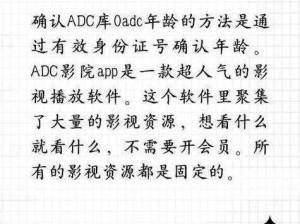 确认ADC库0adc年龄的方法是通
过有效身份证号确认年龄。
ADC影院app是一款超人气的影
视播放软件。这个软件里聚集
了大量的影视资源，想看什么
就看什么，不需要开会员。所
有的影视资源都是固定的。